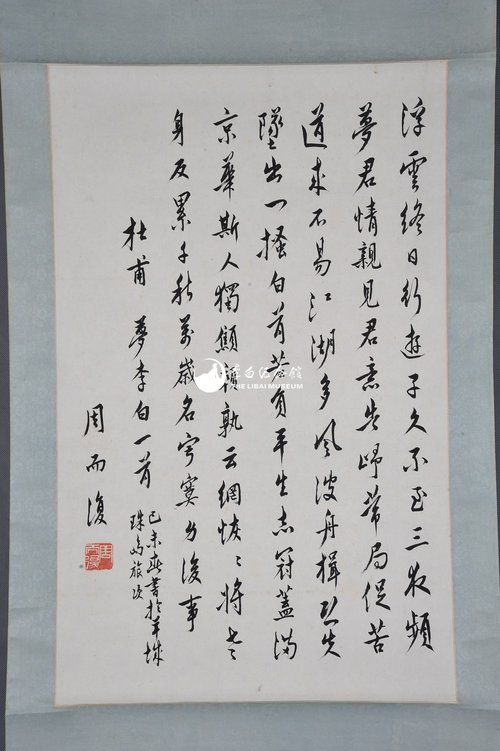 浮雲終日行遊子久不至三夜頻
夢君情親見君意告歸常局促苦
道來不易江湖多風波舟楫恐失
墜出門搔白首若負平生志冠蓋滿
京華斯人獨顦顇孰云網恢〻將老
身反累千秋萬歲名寂寞身後事
杜甫 夢李白一首
己未春書於羊城
珠島旅次
周而復
李白纪念馆
THE LIBAI MUSEUM